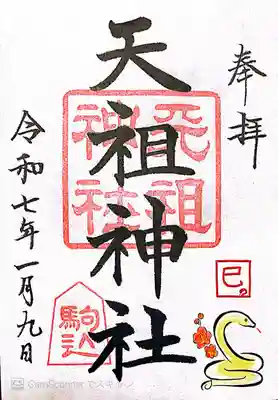 奉拝
天祖神社
天祖神社
駒込
巳
令和七年一月九日
CamScanner でスキャン